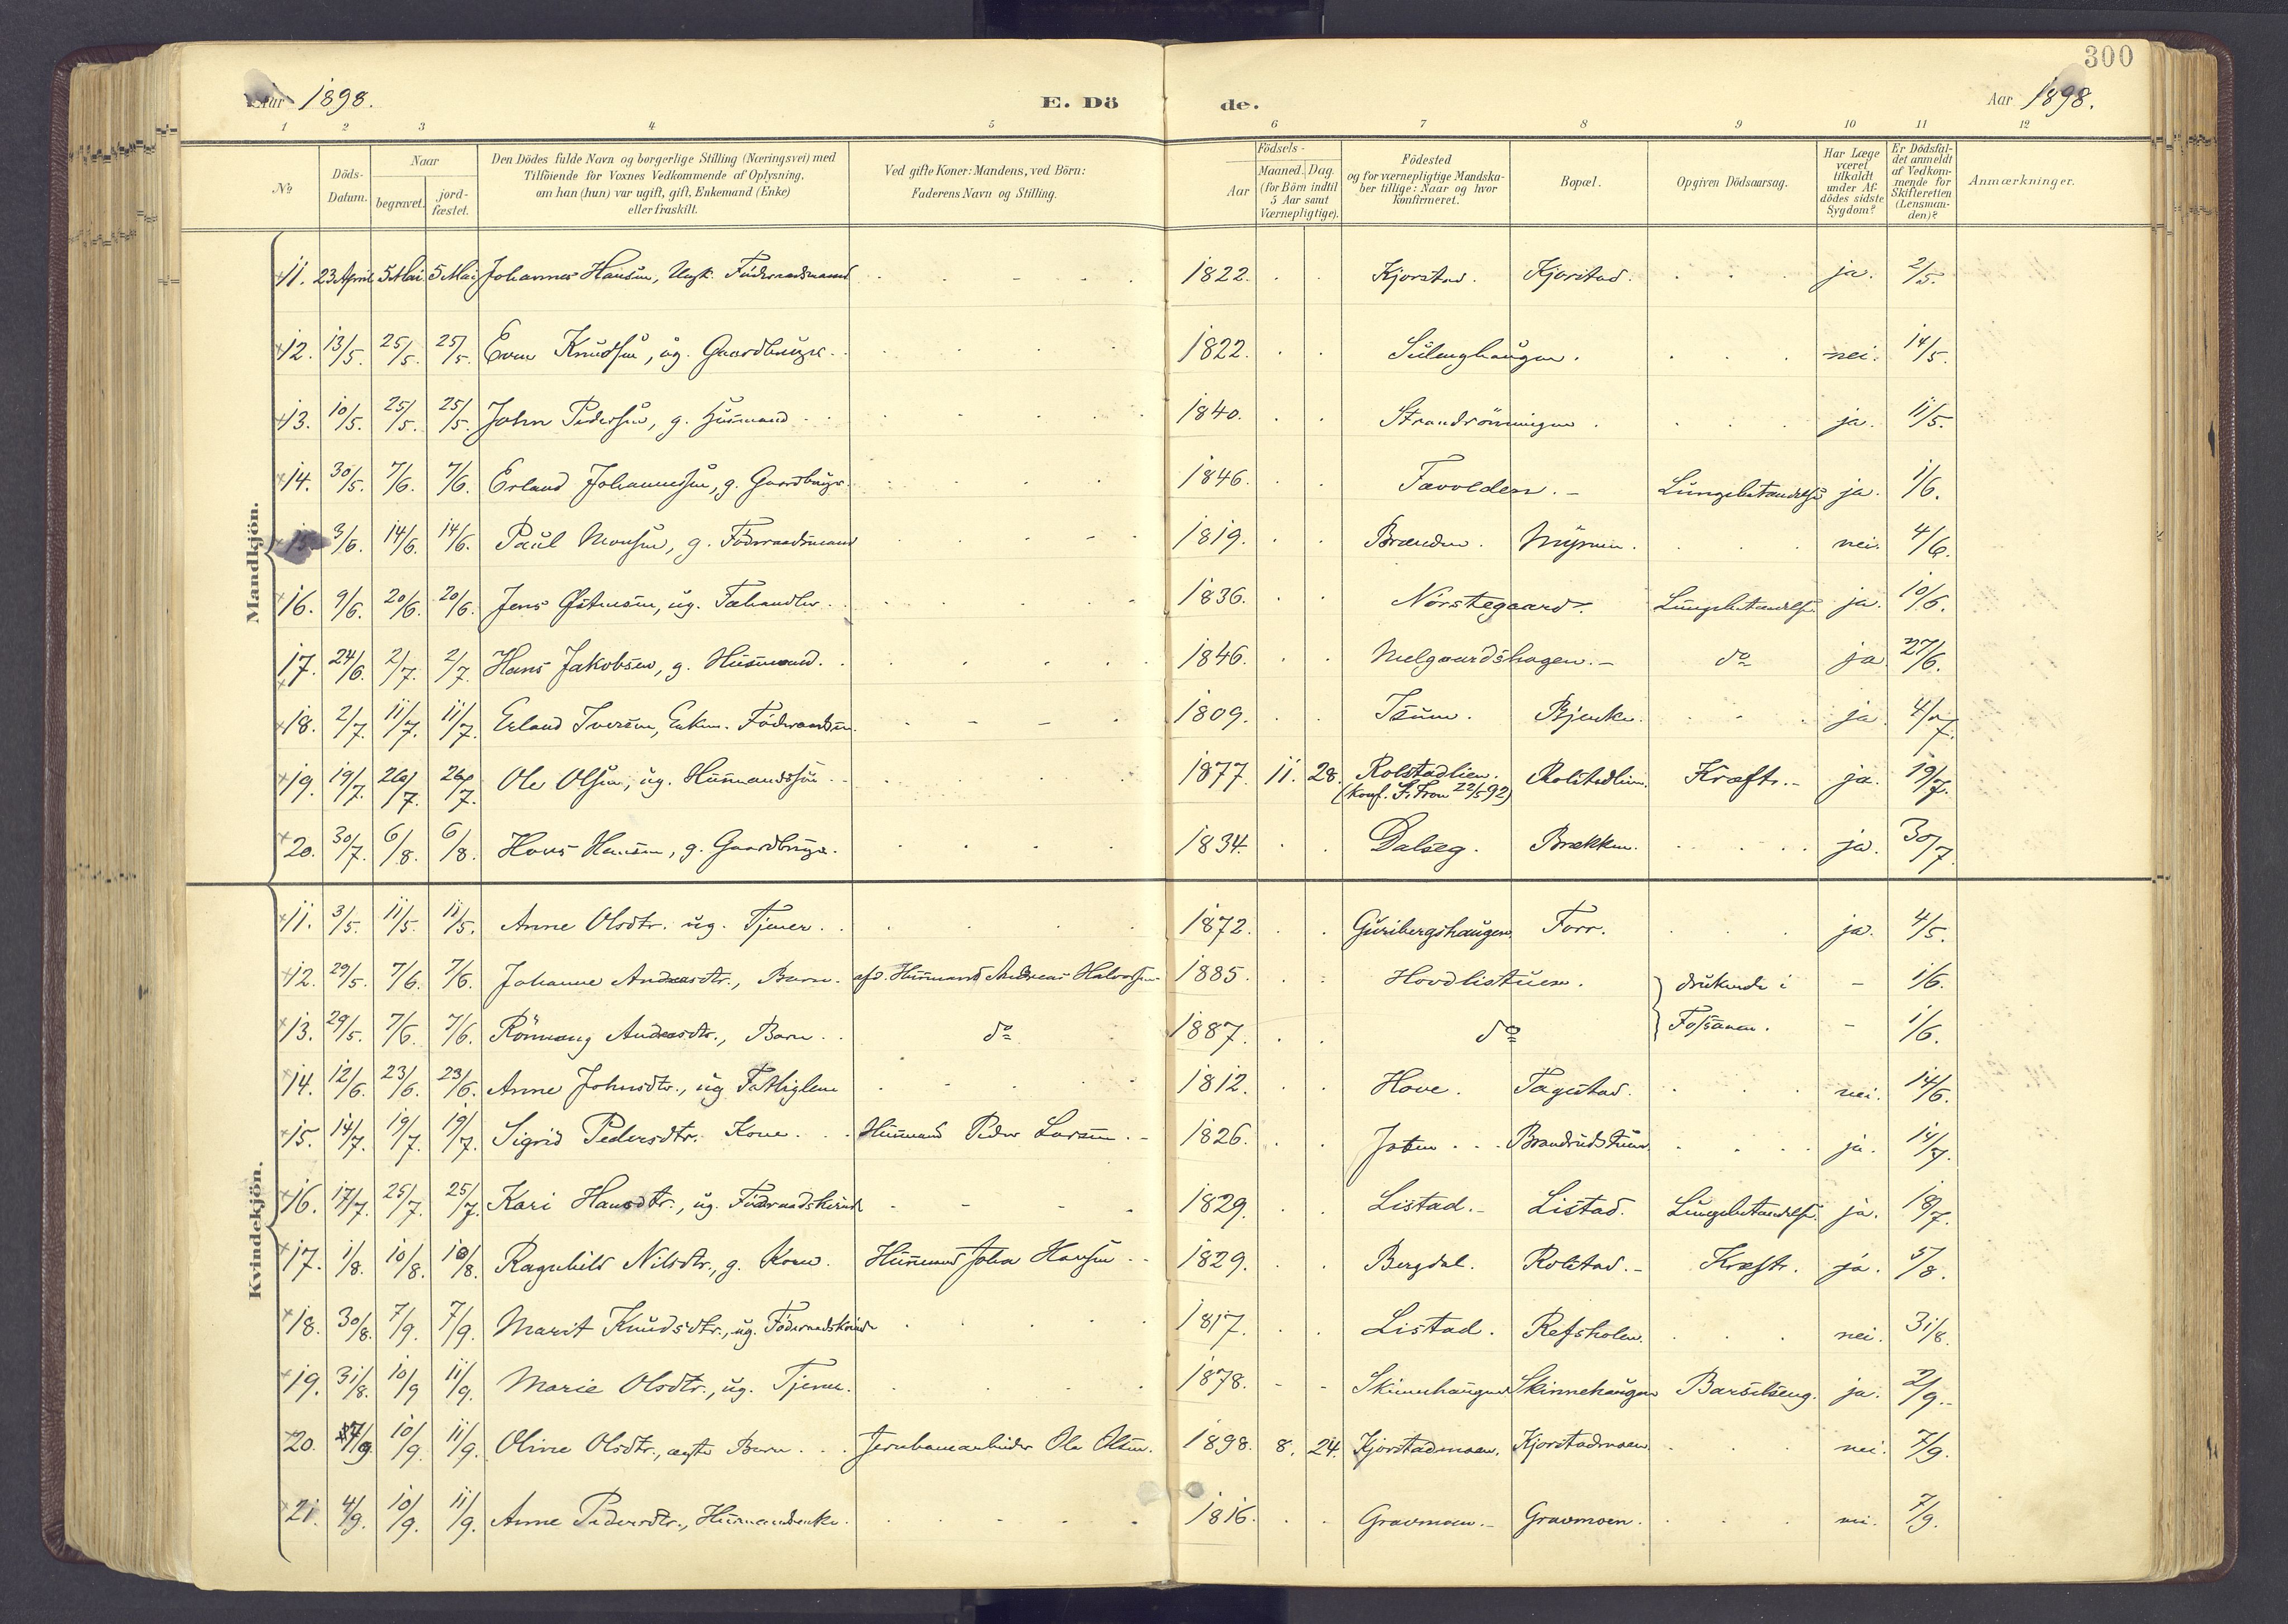 300
Aar 1898. E. Dö de. Aar 1898.
1 2 3 4 5 6 7 8 9 10 11 12
No
Döds-Datum.
Naar
begravet.
jord-fæstet.
Den Dödes fulde Navn og borgerlige Stilling (Næringsvei) med
Tilföiende for Voxnes Vedkommende af Oplysning,
om han (hun) var ugift, gift, Enkemand (Enke)
eller fraskilt.
Ved gifte Koner: Mandens, ved Börn:
Faderens Navn og Stilling.
Födsels-
Aar
Maaned. Dag.
(for Börn indtil
5 Aar samt
Værnepligtige).
Födested
og for værnepligtige Mandska-
ber tillige: Naar og hvor
konfirmeret.
Bopæl.
Opgiven Dödsaarsag.
Har Læge
været
tilkaldt
under Af-
dödes sidste
Sygdom?
Er Dödsfal-
det anmeldt
af Vedkom-
mende for
Skifteretten
(Lensman-
den)?
Anmærkninger.
Mandkjön.
11. 23 April 5 Mai 5 Mai Johannes Hansen, Ungk. Föderaadsmand 1822. Kjorstad. Kjorstad. ja. 2/5.
12. 13/5. 25/5. 25/5. Even Knudsen, ug. Gaardbruger. 1822. nei. 14/5.
13. 10/5. 25/5. 25/5. John Pedersen, g. Husmand 1840. Strandrönningen. ja. 11/5.
14. 30/5. 7/6. 7/6. Erland Johannessen, g. Gaardbruger. 1846. Tavolden. - Lungebetændelse ja. 1/6.
15. 3/6. 14/6. 14/6. Paul Monsen, g. Föderaadsmand 1819. Brenden. Myren. nei. 4/6.
16. 9/6. 20/6. 20/6. Jens Østensen, ug. Fæhandler. 1836. Nörstegaard. Lungebetændelse. ja. 10/6.
17. 24/6. 2/7. 2/7. Hans Jakobsen, g. Husmand. 1846. Melgaardshagen. - do ja 27/6.
18. 2/7. 11/7. 11/7. Erland Iversen, Enkm. Föderaadsm. 1809. Isum. Bjerke. ja. 4/7.
19. 19/7. 26/7. 26/7. Ole Olsen, ug. Husmandssön 1877. 11. 28. Rolstadlien. Rolstadlien. Kræft. - ja. 19/7.
(Konf. S. Fron 22/5 92)
20. 30/7. 6/8. 6/8. Hans Hansen, g. Gaardbruger. 1834. Dalseg. Brækken. ja. 30/7.
Kvindekjön.
11. 3/5. 11/5. 11/5. Anne Olsdtr. ug. Tjener. 1872. Guribergshaugen. Forr. ja. 4/5.
12. 29/5. 7/6. 7/6. Johanne Andreasdtr., Barn. afd. Husmand Andreas Halvorsen. 1885. Hovdlistuen. druknede i - 1/6.
13. 29/5. 7/6. 7/6. Rönnaug Andreasdtr., Barn. do 1887. do Fossaaen. - 1/6.
14. 12/6. 23/6. 23/6. Anne Johnsdtr., ug Fattiglem 1812. Hove. Tagestad. nei. 14/6.
15. 14/7. 19/7. 19/7. Sigrid Pedersdtr. Kone. Husmand Peder Larsen. - 1826. Joten. Brandrudstuen. ja. 14/7.
16. 17/7. 25/7. 25/7. Kari Hansdtr., ug. Föderaadskvinde 1829. Listad. - Listad. Lungebetændelse. ja. 18/7.
17. 1/8. 10/8. 10/8. Ragnhild Nilsdtr., g. Kone. Husmand Johan Hansen 1829. Bergdal. Rolstad. - Kræft. ja. 5/8.
18. 30/8. 7/9. 7/9. Marit Knudsdtr., ug. Föderaadskvinde 1817. Listad. Refsholen. nei. 31/8.
19. 31/8. 10/9 11/9. Marie Olsdtr., ug. Tjener. 1878. - - Skinnehaugen Skinnehaugen Barselseng. ja. 2/9.
20. 7/9 10/9. 11/9. Oline Olsdtr., ægte Barn. Jernbanearbeider Ole Olsen. 1898. 8. 24. Kjorstadmoen. Kjorstadmoen nei. 7/9.
21. 4/9. 10/9. 11/9. Anne Pedersdtr., Husmandsenke. 1816. Gravmoen. - Gravmoen. nei. 7/9.